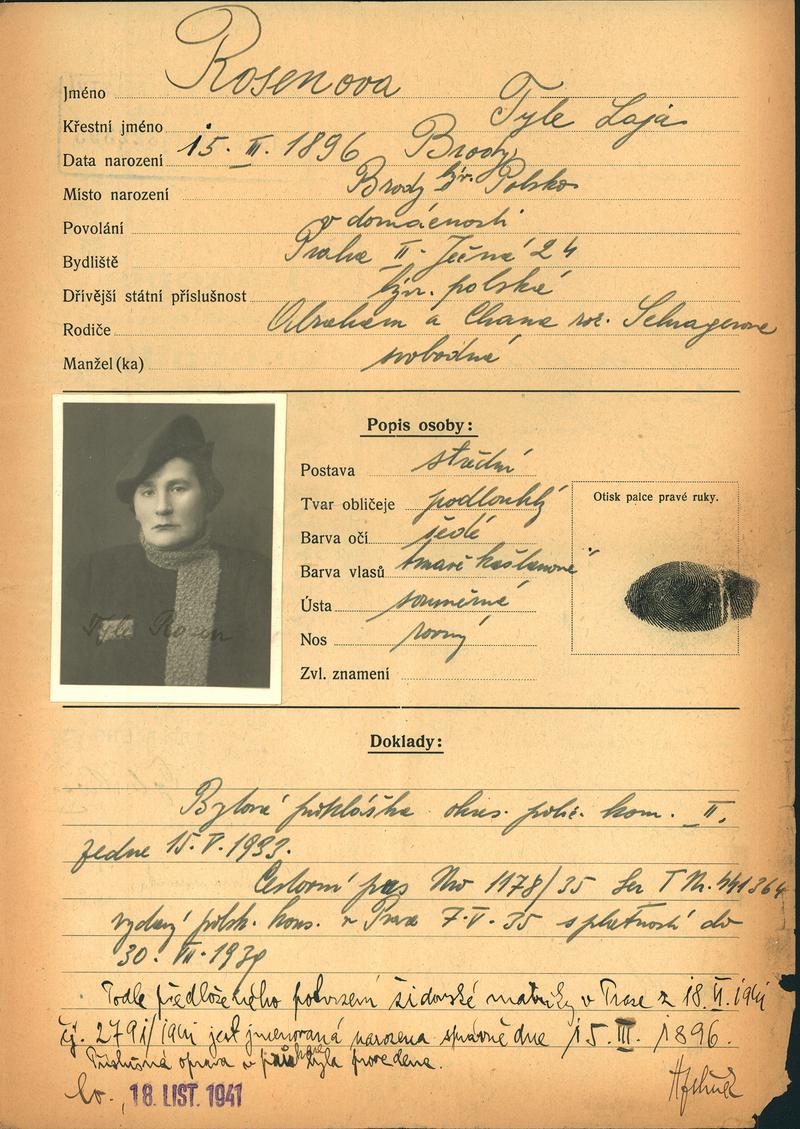 Jméno Rosenova
Křestní jméno Tyle Laja
Data narození 15. III. 1896 Brody
Místo narození Brody Polsko
Povolání v domácnosti
Bydliště Praha II - Ječná 24
Dřívější státní příslušnost býv. polská
Rodiče Abraham a Chana roz. Schragerove
Manžel (ka) svobodná
Popis osoby:
Postava střední
Tvar obličeje podlouhlý
Barva očí šedé
Barva vlasů tmavě kaštanové
Ústa souměrné
Nos rovný
Zvl. znamení
Otisk palce pravé ruky.
Tyle Rosen
Doklady:
Bytová přihláška okres. polic. kom. II.
ze dne 15. V. 1933.
Cestovní pas No 1178/35 Ser T Nr. 441364
vydaný polsk. kons. v Praze 7. V. 35 s platností do
30. VII. 1939
Podle předloženého potvrzení židovské matriky v Praze z 18. XI. 1941
čj. 2791/1941 jest jmenovaná narozena správně dne 15. III. 1896.
Příslušná oprava byla provedena.
18. LIST. 1941